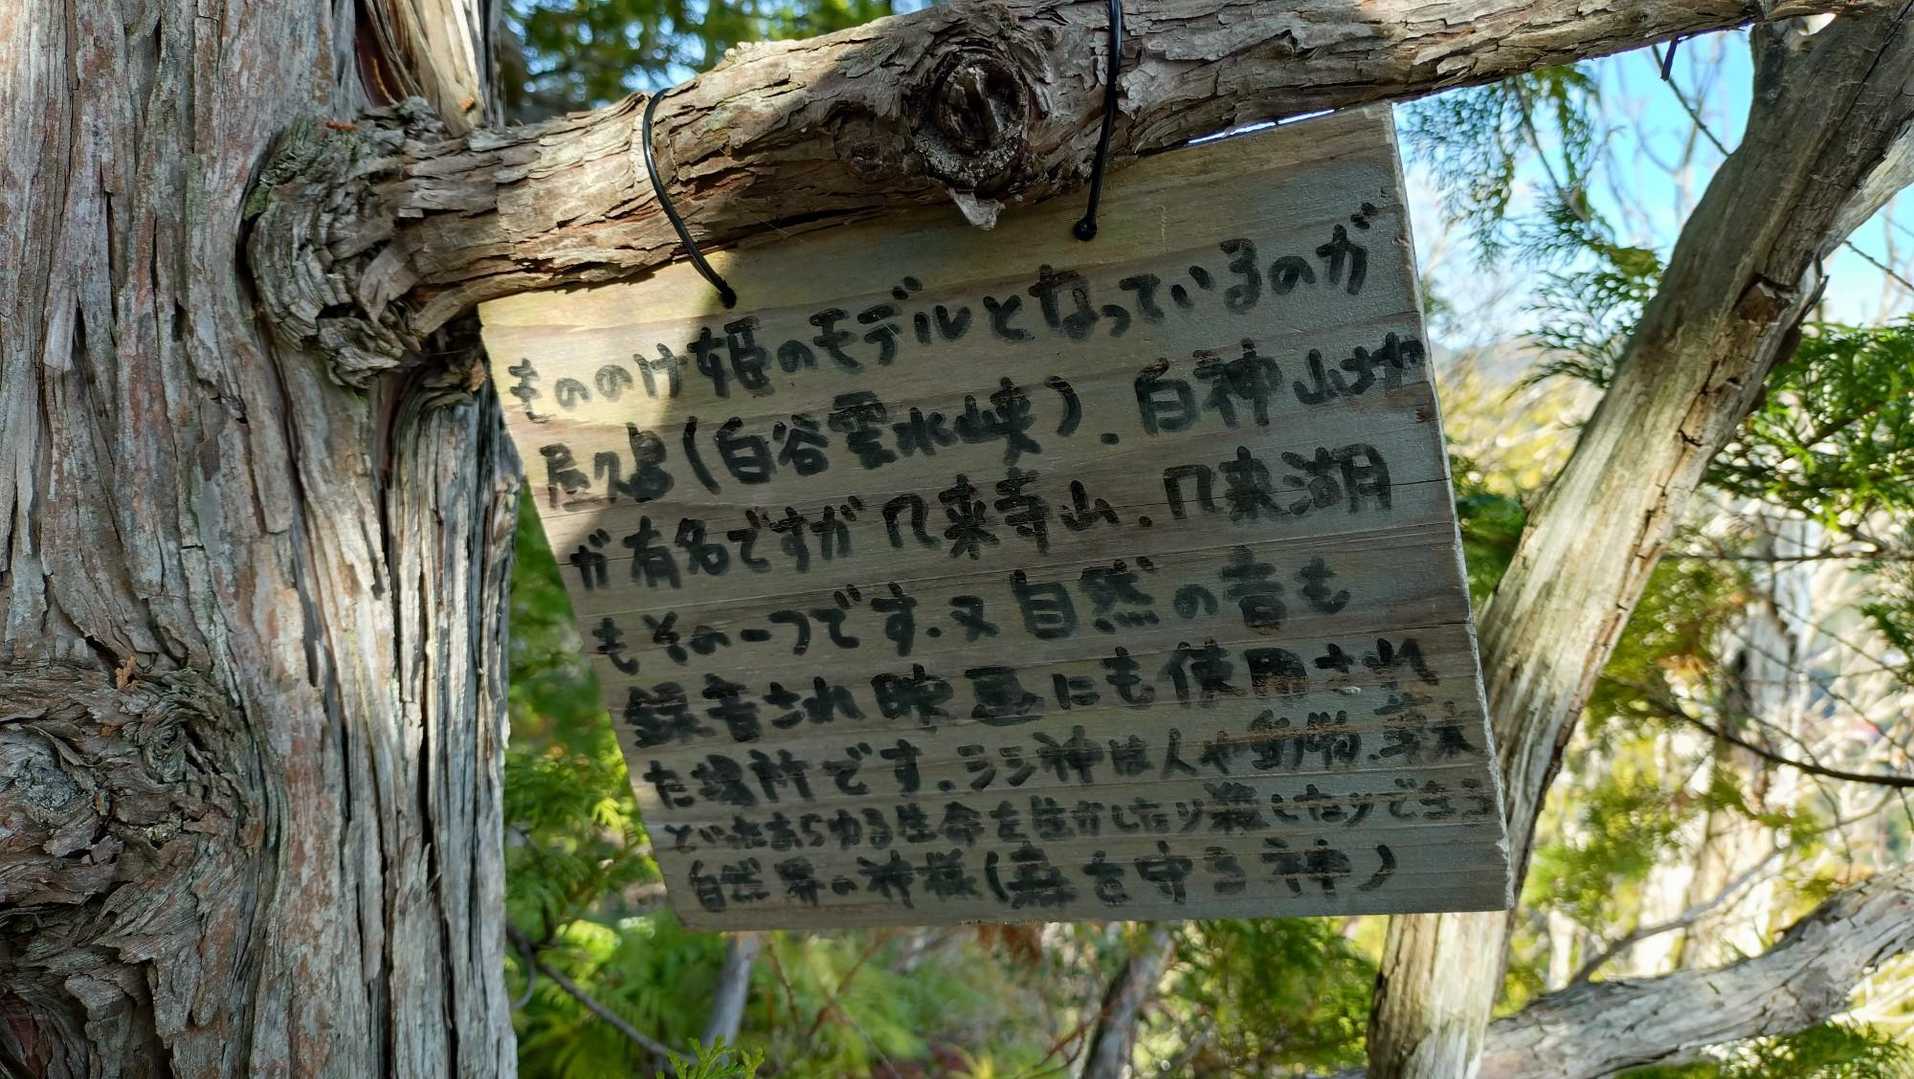 もののけ姫のモデルとなっているのが
屋久島(白谷雲水峡).白神山地
が有名ですが鳳来寺山.鳳来湖
もその一つです.又自然の音も
録音され映画にも使用され
た場所です.シシ神は人や動物.草木
といったあらゆる生命を生かしたり殺したりできる
自然界の神様(森を守る神)